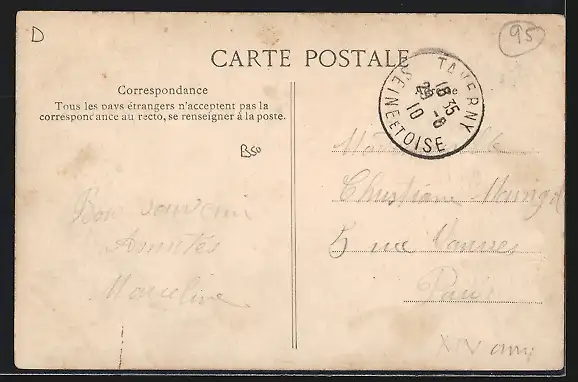 D
95
CARTE POSTALE
Correspondance
Tous les pays étrangers n'acceptent pas la
correspondance au recto, se renseigner à la poste.
Adresse
TAVERNY
18 35
29 -8
10
SEINE ET OISE
B50
Bon souvenir
Amitiés
Marceline
Christiane
5 rue Vannes
Paris
XIV